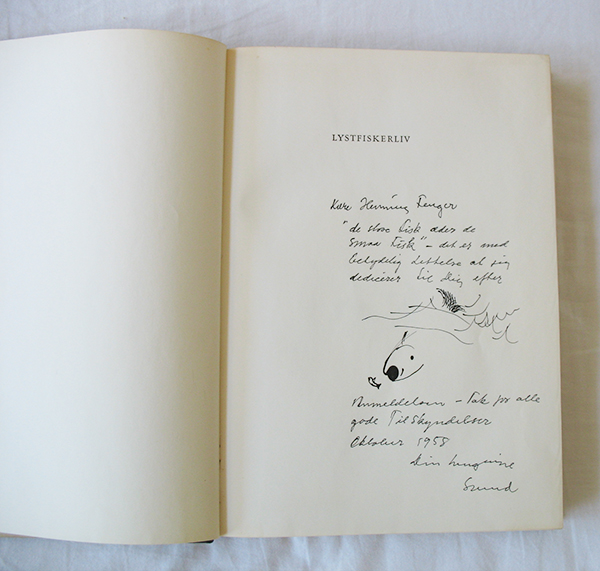 LYSTFISKERLIV
Kære Henning Fenger
"de store Fisk æder de
smaa Fisk" – det er med
betydelig Lettelse at jeg
dedicerer til Dig efter
Anmeldelsen – Tak for alle
gode Tilskyndelser
Oktober 1955
Din hengivne
Svend